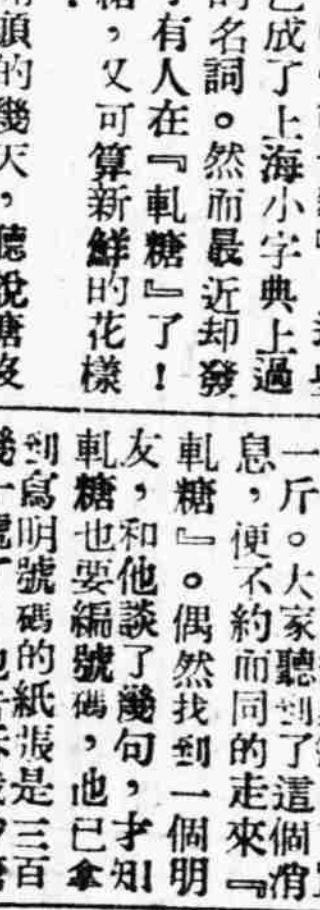 已成了上海小字典上過
的名詞。然而最近却發
有人在『軋糖』了！
，又可算新鮮的花樣
頭的幾天，聽說糖
一斤。大家聽到了這個消
息，便不約而同的走來『
軋糖』。偶然找到一個明
友，和他談了幾句，才知
軋糖也要編號碼，他已拿
到寫明號碼的紙張是三百